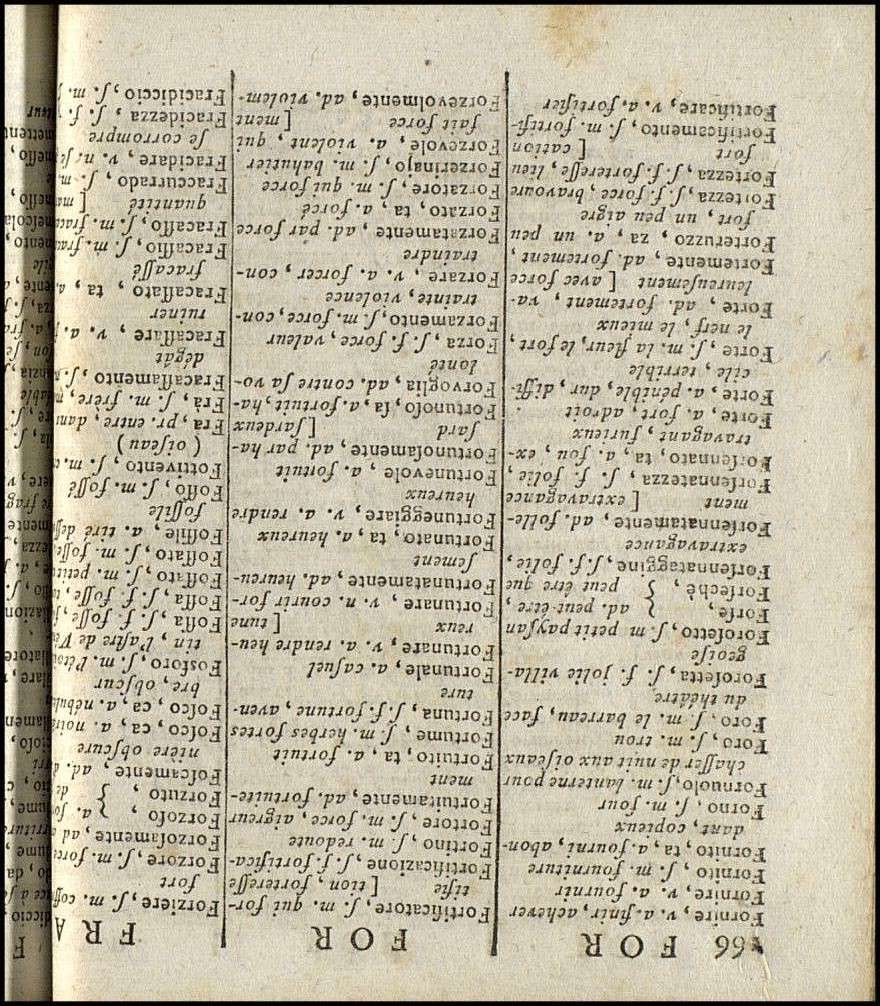 166 F O R
Fornire, v. a. finir, achever
Fornire, v. a. fournir
Fornito, ſ. m. fourniture
Fornito, ta, a. fourni, abon-
dant, copieux
Forno, ſ. m. four
Fornuolo, ſ. m. lanterne pour
chaſſer de nuit aux oiſeaux
Foro, ſ. m. trou
Foro, ſ. m. le barreau, face
du théâtre
Foroſetta, ſ. f. jolie villa-
geoiſe
Foroſetto, ſ. m petit payſan
Forſe, } ad. peut-être,
Forſechè, } peut être que
Forſennataggine, ſ. f. folie,
extravagance
Forſennatamente, ad. folle-
ment [extravagance
Forſennatezza, ſ. f. folie,
Forſennato, ta, a. fou, ex-
travagant, furieux
Forte, a. fort, adroit
Forte, a. pénible, dur, diffi-
cile, terrible
Forte, ſ. m. la fleur, le fort,
le nerf, le mieux
Forte, ad. fortement, va-
leureuſement [avec force
Fortemente, ad. fortement,
Forteruzzo, za, a. un peu
fort, un peu aigre
Fortezza, ſ. f. force, bravoure
Fortezza, ſ. f. fortereſſe, lieu
fort [cation
Fortificamento, ſ. m. fortifi-
Fortificare, v. a. fortifier
F O R
Fortificatore, ſ. m. qui for-
tifie [tion, fortereſſe
Fortificazione, ſ. f. fortifica-
Fortino, ſ. m. redoute
Fortore, ſ. m. force, aigreur
Fortuitamente, ad. fortuite-
ment
Fortuito, ta, a. fortuit
Fortume, ſ. m. herbes fortes
Fortuna, ſ. f. fortune, aven-
ture
Fortunale, a. caſuel
Fortunare, v. a. rendre heu-
reux [tune
Fortunare, v. n. courir for-
Fortunatamente, ad. heureu-
ſement
Fortunato, ta, a. heureux
Fortuneggiare, v. a. rendre
heureux
Fortunevole, a. fortuit
Fortunoſamente, ad. par ha-
ſard [ſardeux
Fortunoſo, ſa, a. fortuit, ha-
Forvoglia, ad. contre ſa vo-
lonté
Forza, ſ. f. force, valeur
Forzamento, ſ. m. force, con-
trainte, violence
Forzare, v. a. forcer, con-
traindre
Forzatamente, ad. par force
Forzato, ta, a. forcé
Forzatore, ſ. m. qui force
Forzerinajo, ſ. m. bahutier
Forzevole, a. violent, qui
fait force [ment
Forzevolmente, ad. violem-
F R A
Forziere, ſ. m.
fort
Forzore, ſ. m.
Forzoſamente, ad.
Forzoſo, } a.
Forzuto, }
Foſcamente, ad.
nière obſcure
Foſco, ca, a.
Foſco, ca, a.
bre, obſcur
Fosforo, ſ. m.
tin, l'aſtre de
Foſſa, ſ. f. foſſe,
Foſſa, ſ. f. foſſe,
Foſſato, ſ. m.
Foſſato, ſ. m.
Foſſile, a. tiré
foſſile
Foſſo, ſ. m. foſſé
Fottivento, ſ. m.
(oiſeau)
Fra, pr. entre,
Frà, ſ. m. frère,
Fracaſſamento, ſ.
dégât
Fracaſſare, v. a.
ruiner
Fracaſſato, ta,
fracaſſé
Fracaſſio, ſ. m.
Fracaſſo, ſ. m.
quantité
Fraccurrado, ſ.
Fracidare, v. n.
ſe corrompre
Fracidezza, ſ. f.
Fracidiccio, ſ. m.